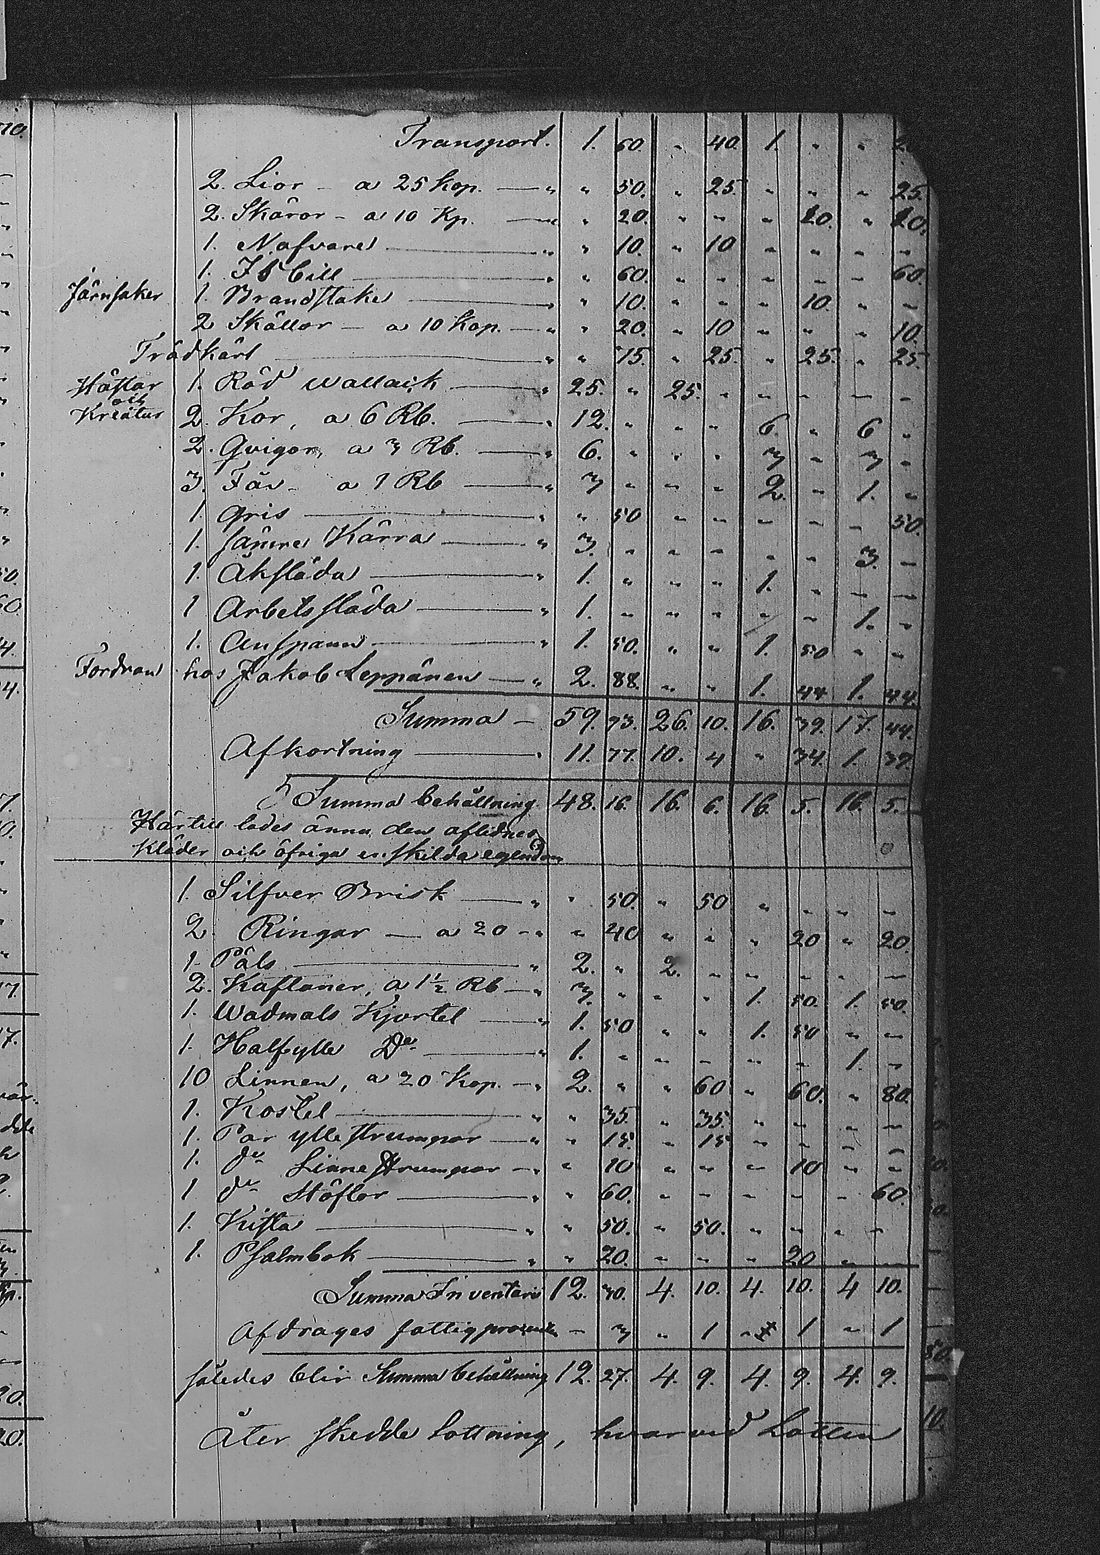 Transport. 1. 60. " 40. 1. " "
2. Lior - a 25 kop. " " 50. " 25. " " " 25.
2. Skäror - a 10 Kp. " " 20. " " " 20. " 20.
1. Nafvare " " 10. " 10 " " " "
1. Isbill " " 60. " " " " " 60.
Järnsaker 1. Brandstake " " 10. " " " 10. " "
2 Skällor - a 10 Kop. " " 20. " 10 " " " 10.
Trädkärl " " 75. " 25. " 25. " 25.
Hästar 1. Röd Wallack " 25. " 25. " " " " "
och
Kreatur 2. Kor, a 6 Rb. " 12. " " " 6. " 6 "
2. Qvigor, a 3 Rb. " 6. " " " 3 " 3 "
3. Får - a 1 Rb " 3 " " " 2. " 1. "
1 gris " " 50 " " " " " 50.
1. sämre Kärra " 3. " " " " " 3. "
1. Åksläda " 1. " " " 1. " " "
1 Arbetssläda " 1. " " " " " 1. "
1. Anspann " 1. 50. " " 1. 50 " "
Fordran hos Jakob Leppänen " 2. 88. " " 1. 44 1. 44.
Summa - 59. 93. 26. 10. 16. 39. 17. 44.
Afkortning 11. 77. 10. 4 " 34. 1. 39.
Summa behållning 48. 16. 16. 6. 16. 5. 16. 5.
Härtill lades ännu den aflidnes
Kläder och öfriga enskilda egendom
1. Silfver Brisk " " 50. " 50 " " " "
2. Ringar - a 20 " " 40 " " " 20 " 20.
1. Päls " 2. " 2. " " " " "
2. Kaftaner, a 1½ Rb " 3. " " " 1. 50. 1. 50.
1. Wadmals Kjortel " 1. 50 " " 1. 50 " "
1. Halfylle Do " 1. " " " " " 1. "
10 Linnen, a 20 Kop. " 2. " " 60 " 60. " 80.
1. " " 35. " 35. " " " "
1. Par ylle strumpor " " 15. " 15 " " " "
1. do Linne strumpor " " 10 " " " 10 " "
1 do Stöflor " " 60. " " " " " 60.
1. Kista " " 50. " 50. " " " "
1. Psalmbok " " 20. " " " 20 " "
Summa Inventarii 12. 30. 4. 10. 4. 10. 4 10.
Afdrages fattigprocent - 3 " 1 " 1 " 1
således blir Summa behållning 12. 27. 4. 9. 4. 9. 4. 9.
Åter skedde lottning, hvarvid Lotten